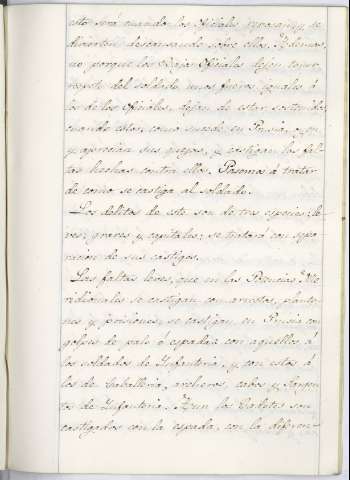 esto será cuando los Oficiales gozan y se
divierten descansando sobre ellos. Además,
no porque los Bajos Oficiales dejen tener
respeto del soldado unos fueros iguales á
los de los Oficiales, dejan de estar sostenidos
cuando estos, como sucede en Prusia, oyen
y aprecian sus quejas, y castigan las fal-
tas hechas contra ellos. Pasemos á tratar
de como se castiga al soldado.
Los delitos de este son de tres especies: le-
ves; graves y capitales; se tratará con sepa-
racion de sus castigos.
Las faltas leves, que en las Potencias Me-
ridionales se castigan con arrestos, planto-
nes y priciones, se castigan en Prusia con
golpes de palo ó espada: con aquellos á
los soldados de Ynfanteria, y con estos á
los de caballeria, archeros, cabos y Sargen-
tos de Ynfanteria. Aun los Cadetes son
castigados con la espada, con la diferen-